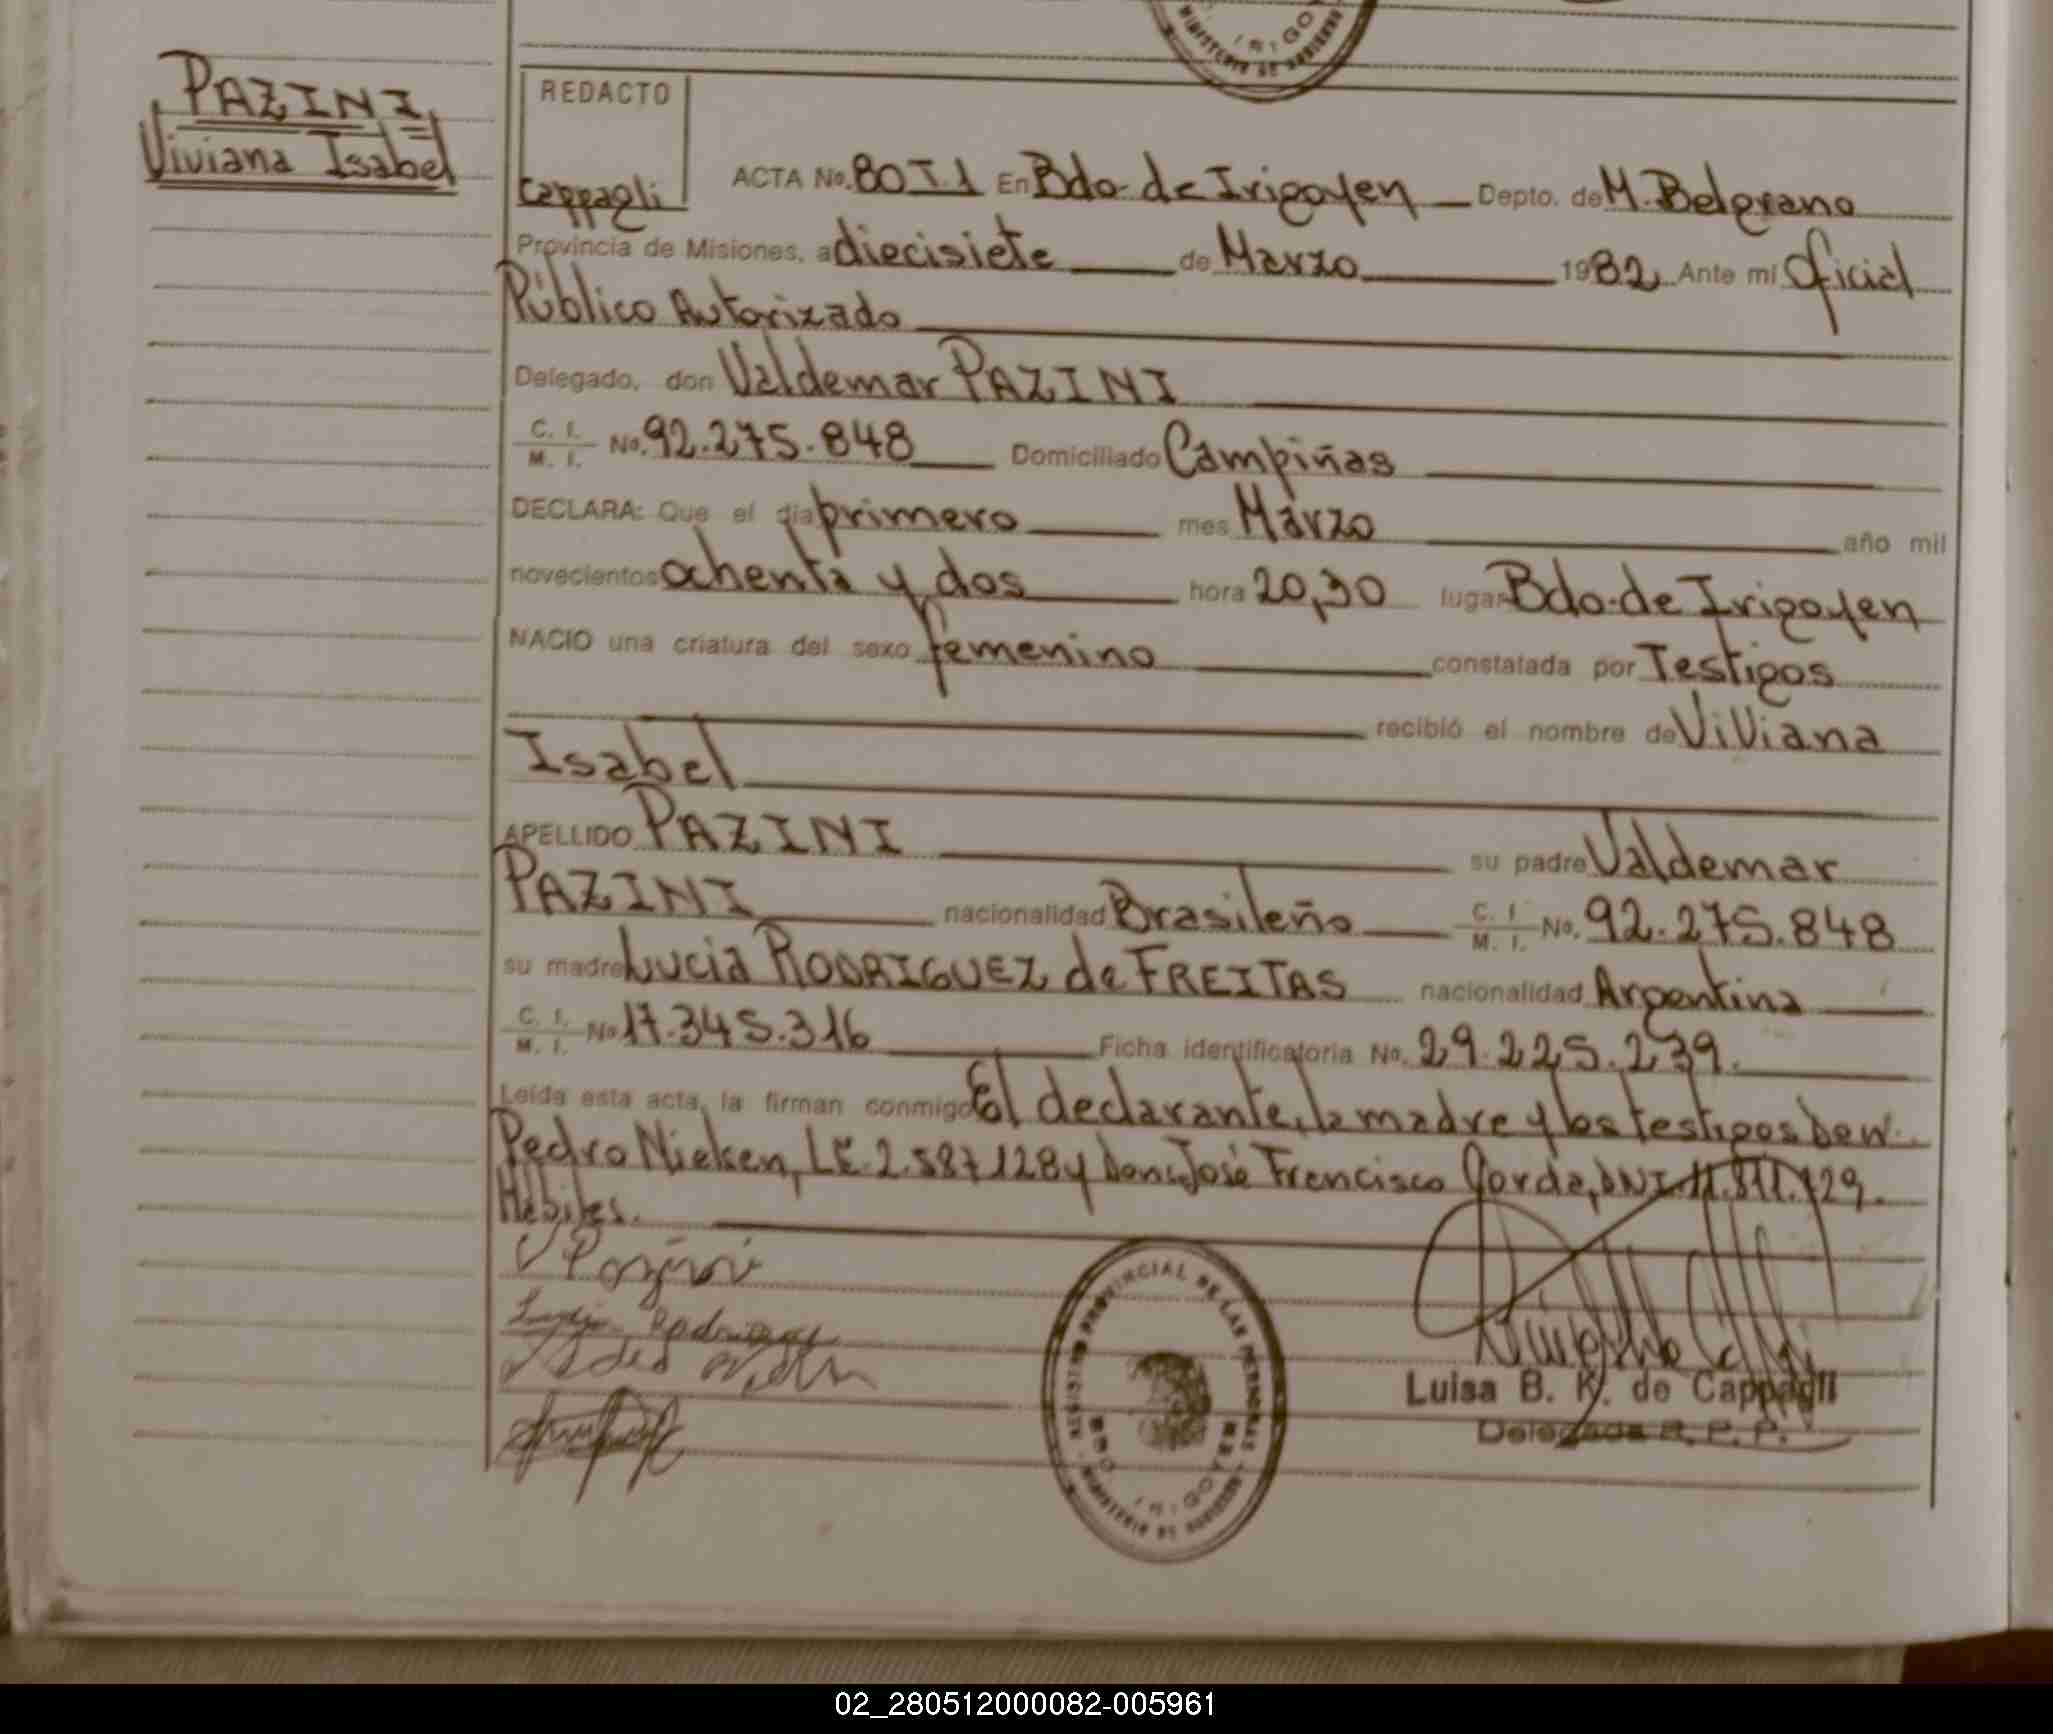 PAZINI
Viviana Isabel
REDACTO
Cappagli
ACTA No. 80 T.1 En Bdo. de Irigoyen Depto. de M. Belgrano
Provincia de Misiones, a diecisiete de Marzo 1982 Ante mi Oficial
Público Autorizado
Delegado, don Valdemar PAZINI
C. I. / M. I. No. 92.275.848 Domiciliado Campiñas
DECLARA: Que el dia primero mes Marzo año mil
novecientos ochenta y dos hora 20,30 lugar Bdo. de Irigoyen
NACIO una criatura del sexo femenino constatada por Testigos
recibió el nombre de Viviana
Isabel
APELLIDO PAZINI su padre Valdemar
PAZINI nacionalidad Brasileño C. I. / M. I. No. 92.275.848
su madre Lucia RODRIGUEZ de FREITAS nacionalidad Argentina
C. I. / M. I. No 17.345.316 Ficha identificatoria No. 29.225.239.
Leída esta acta, la firman conmigo El declarante, la madre y los testigos Don
Pedro Nielsen, LE. 2.587128 y Don José Francisco DNI.
Hábiles.
V Pazini
Rodriguez
PROVINCIAL DE LAS PERSONAS
BDO IRIGOYEN
MINISTERIO DE GOBIERNO
Luisa B. K. de Cappagli
Delegada R. P. P.
02_280512000082-005961